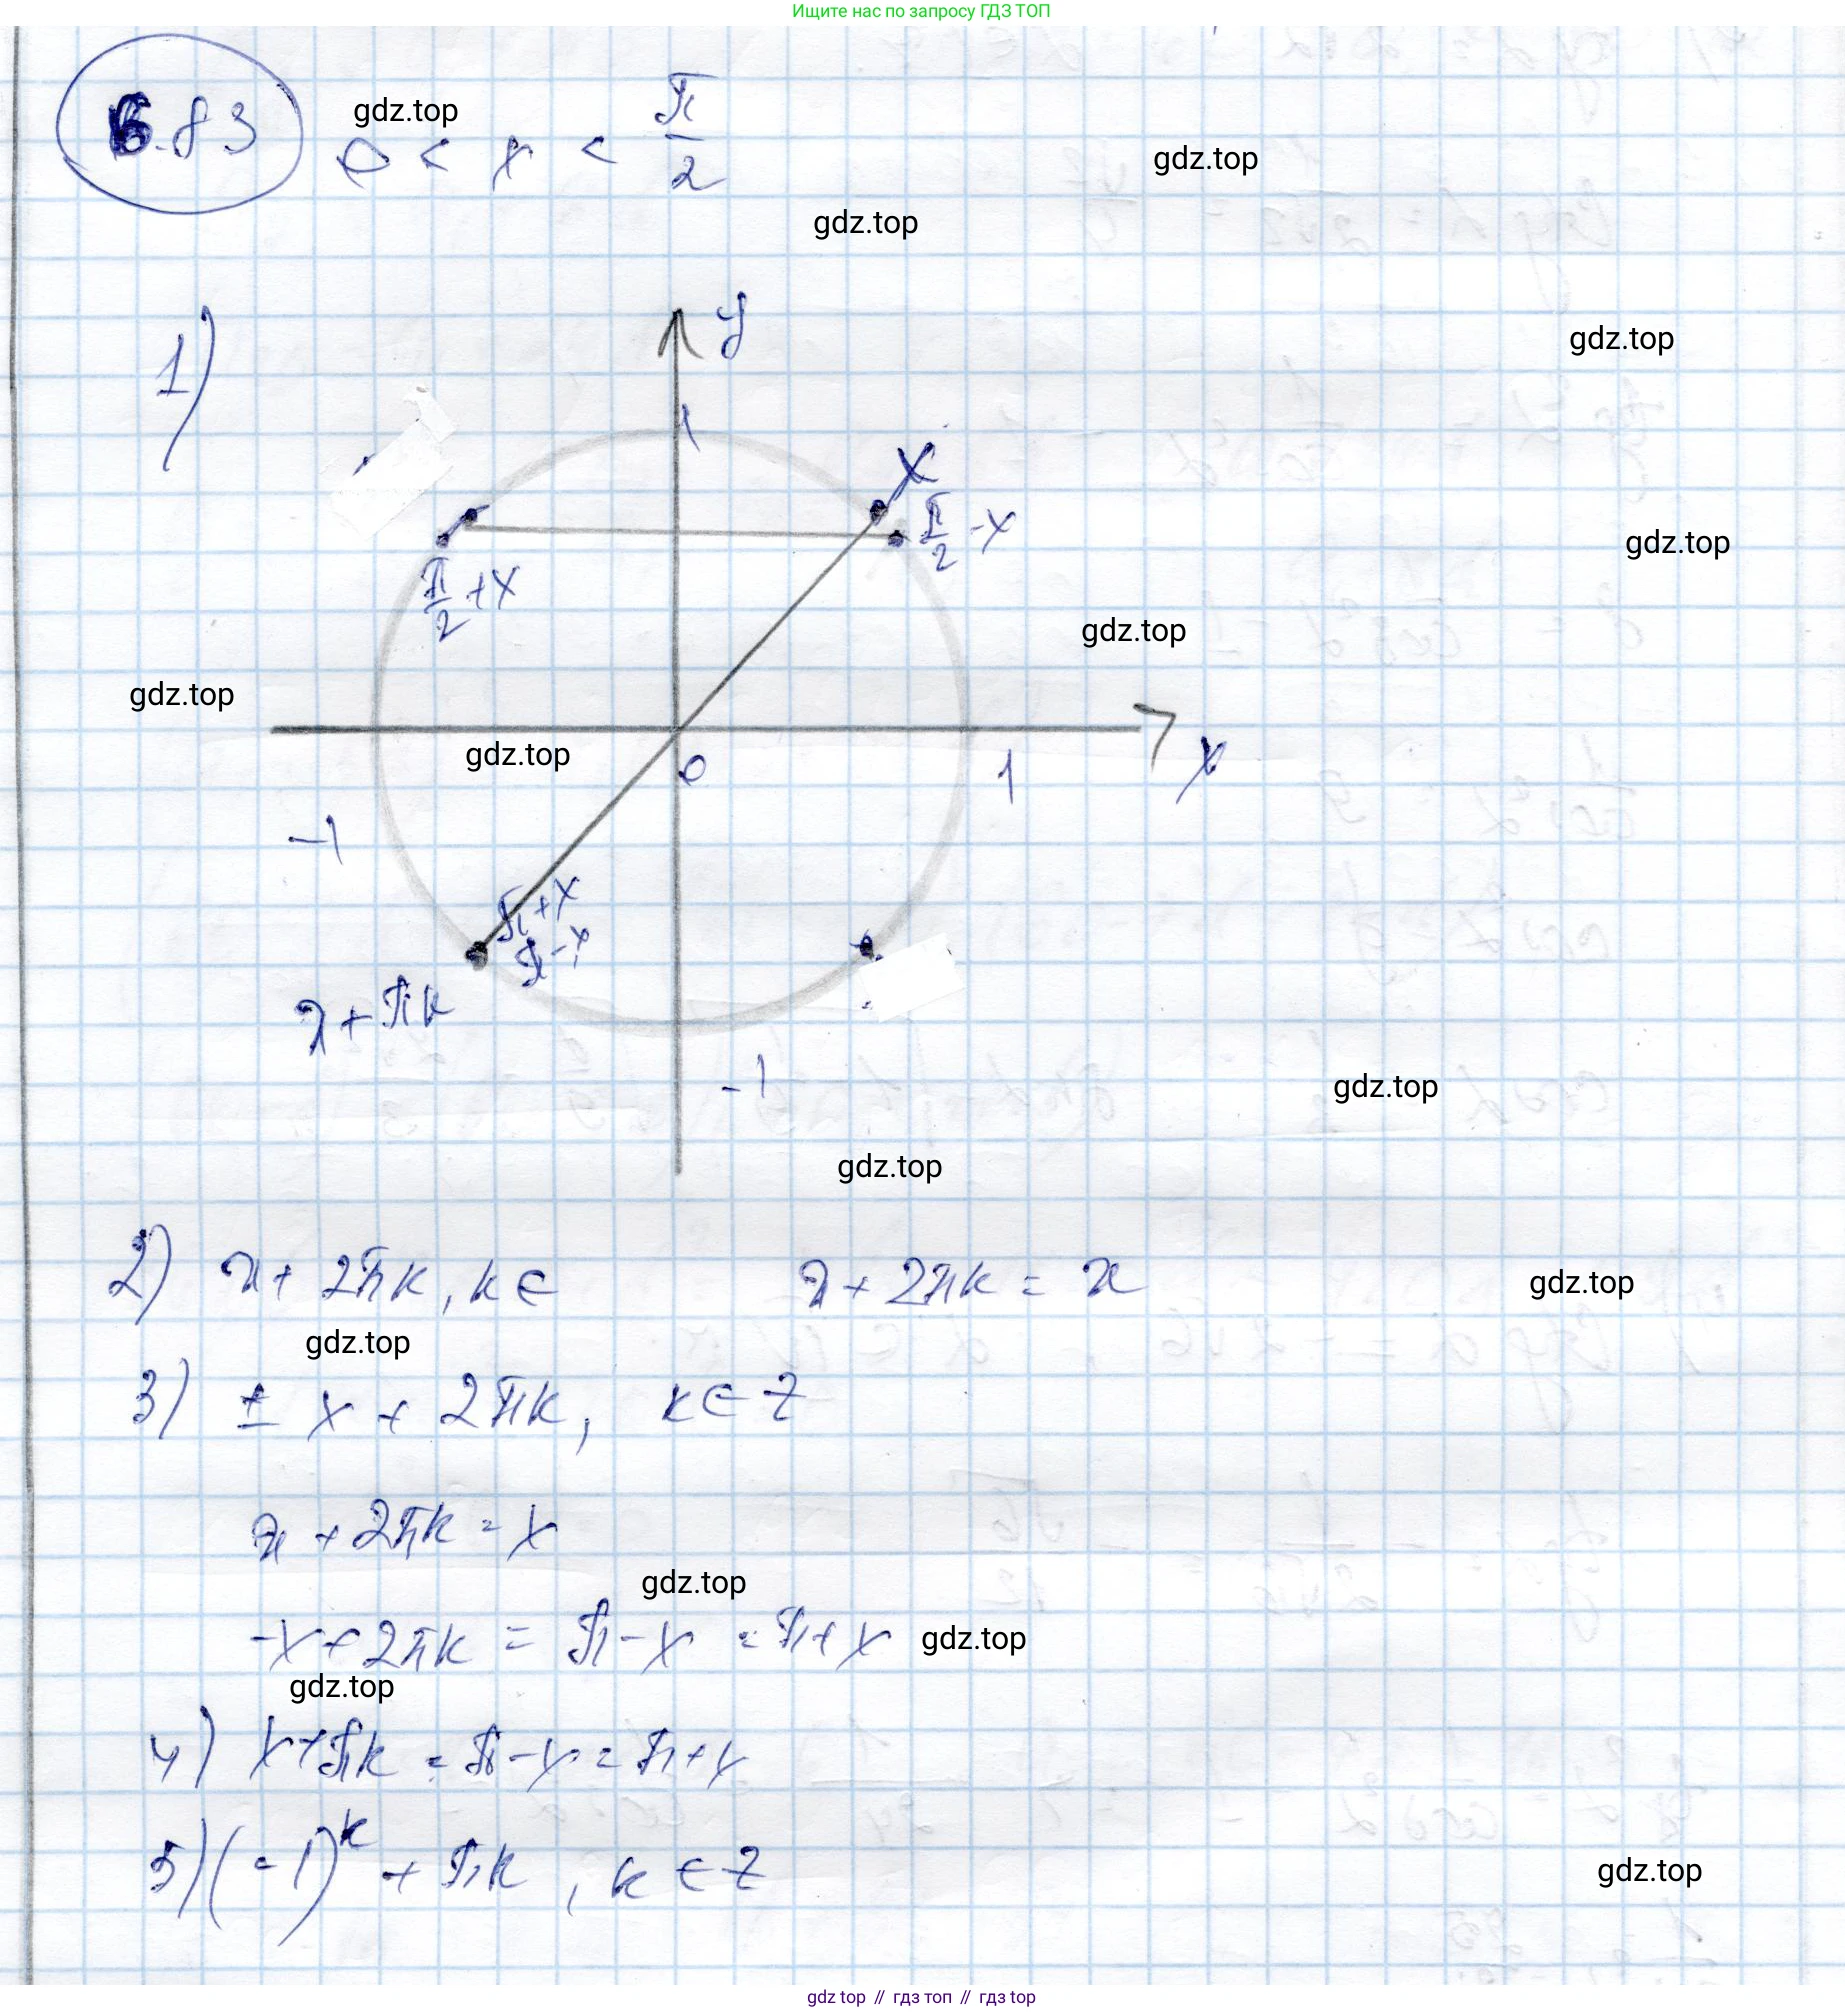 Ищите нас по запросу ГДЗ ТОП
6.83
0 < x < π/2
gdz.top
gdz.top
gdz.top
1)
y
gdz.top
1
x
π/2 - x
gdz.top
π/2 + x
gdz.top
gdz.top
gdz.top
0
1
x
-1
π + x
π - x
x + πk
-1
gdz.top
gdz.top
2) x + 2πk, k ∈
x + 2πk = x
gdz.top
gdz.top
3) ± x + 2πk, k ∈ Z
x + 2πk = x
gdz.top
-x + 2πk = π - x = π + x
gdz.top
gdz.top
4) x + πk = π - x = π + x
5) (-1)^k + πk, k ∈ Z
gdz.top
gdz top // гдз топ // гдз top